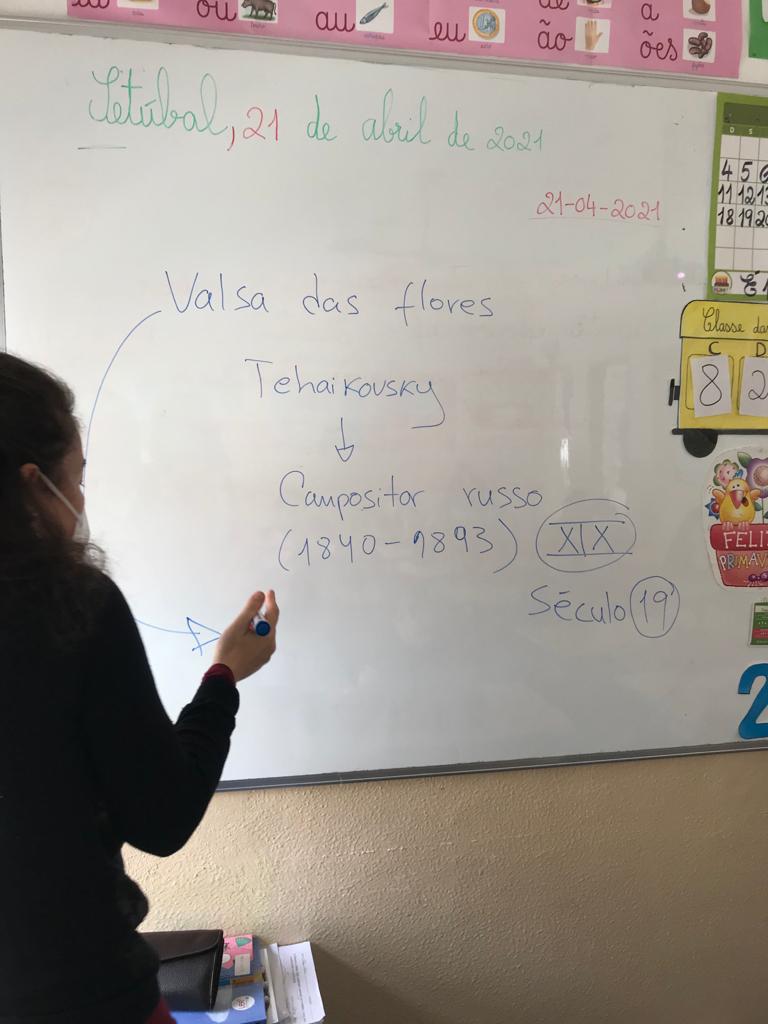 ou
au
eu
ão
a
ões
Setúbal, 21 de abril de 2021
21-04-2021
D S
4 5 6
11 12 13
18 19 20
Valsa das flores
Tchaikovsky
Compositor russo
(1840-1893) XIX
Século 19
Classe da
C D
8 2
FELIZ
PRIMAV
2